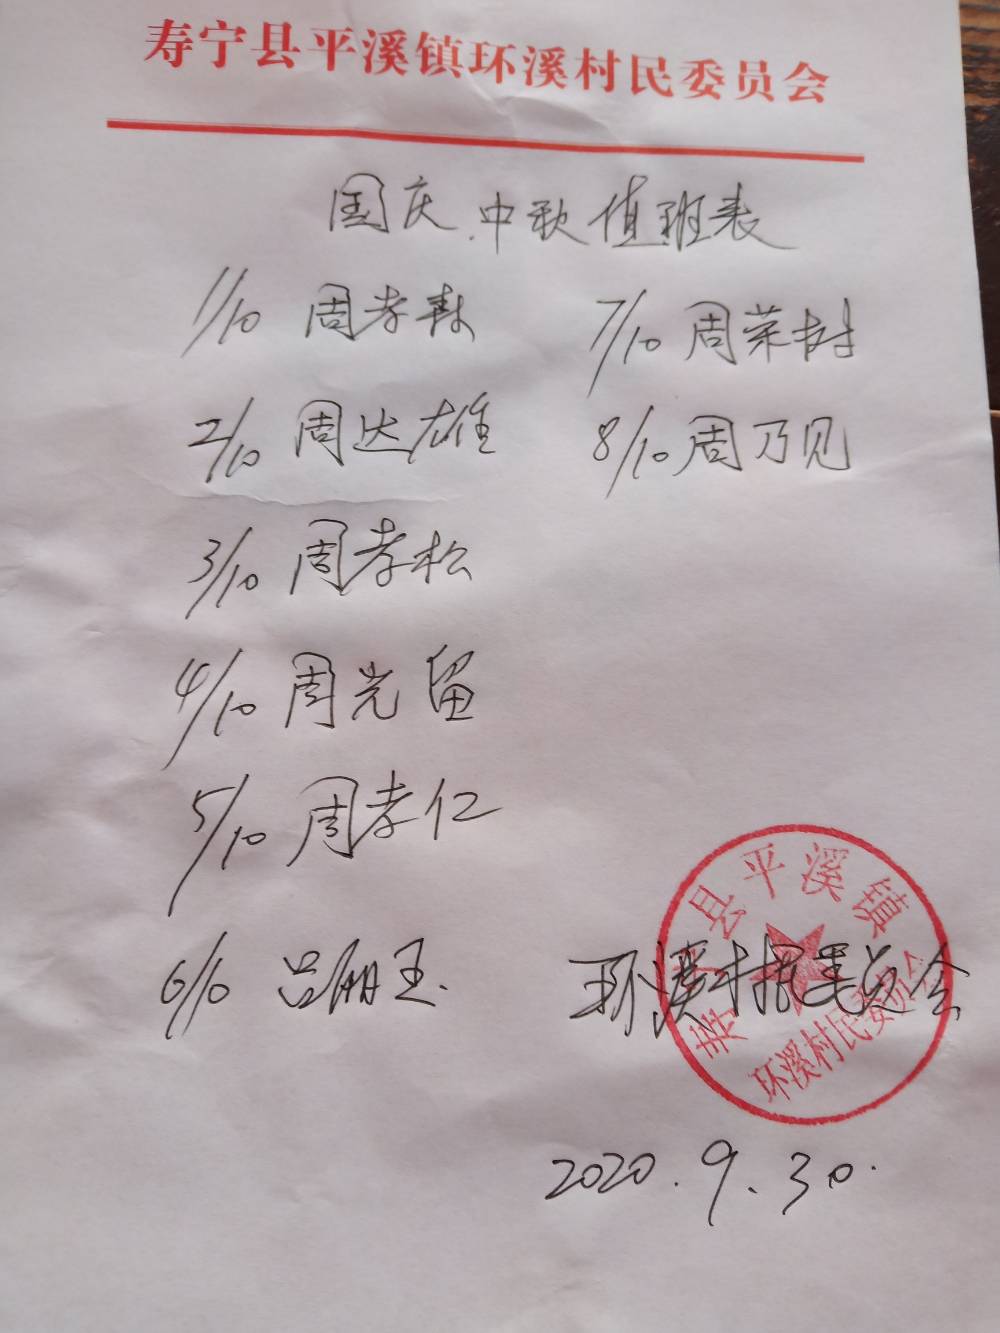 寿宁县平溪镇环溪村民委员会
国庆.中秋值班表
1/10 周孝森
2/10 周达雄
3/10 周孝松
4/10 周光留
5/10 周孝仁
6/10 吕册玉.
7/10 周荣树
8/10 周乃见
环溪村民委员会
寿宁县平溪镇
环溪村民委员会
2020.9.30.